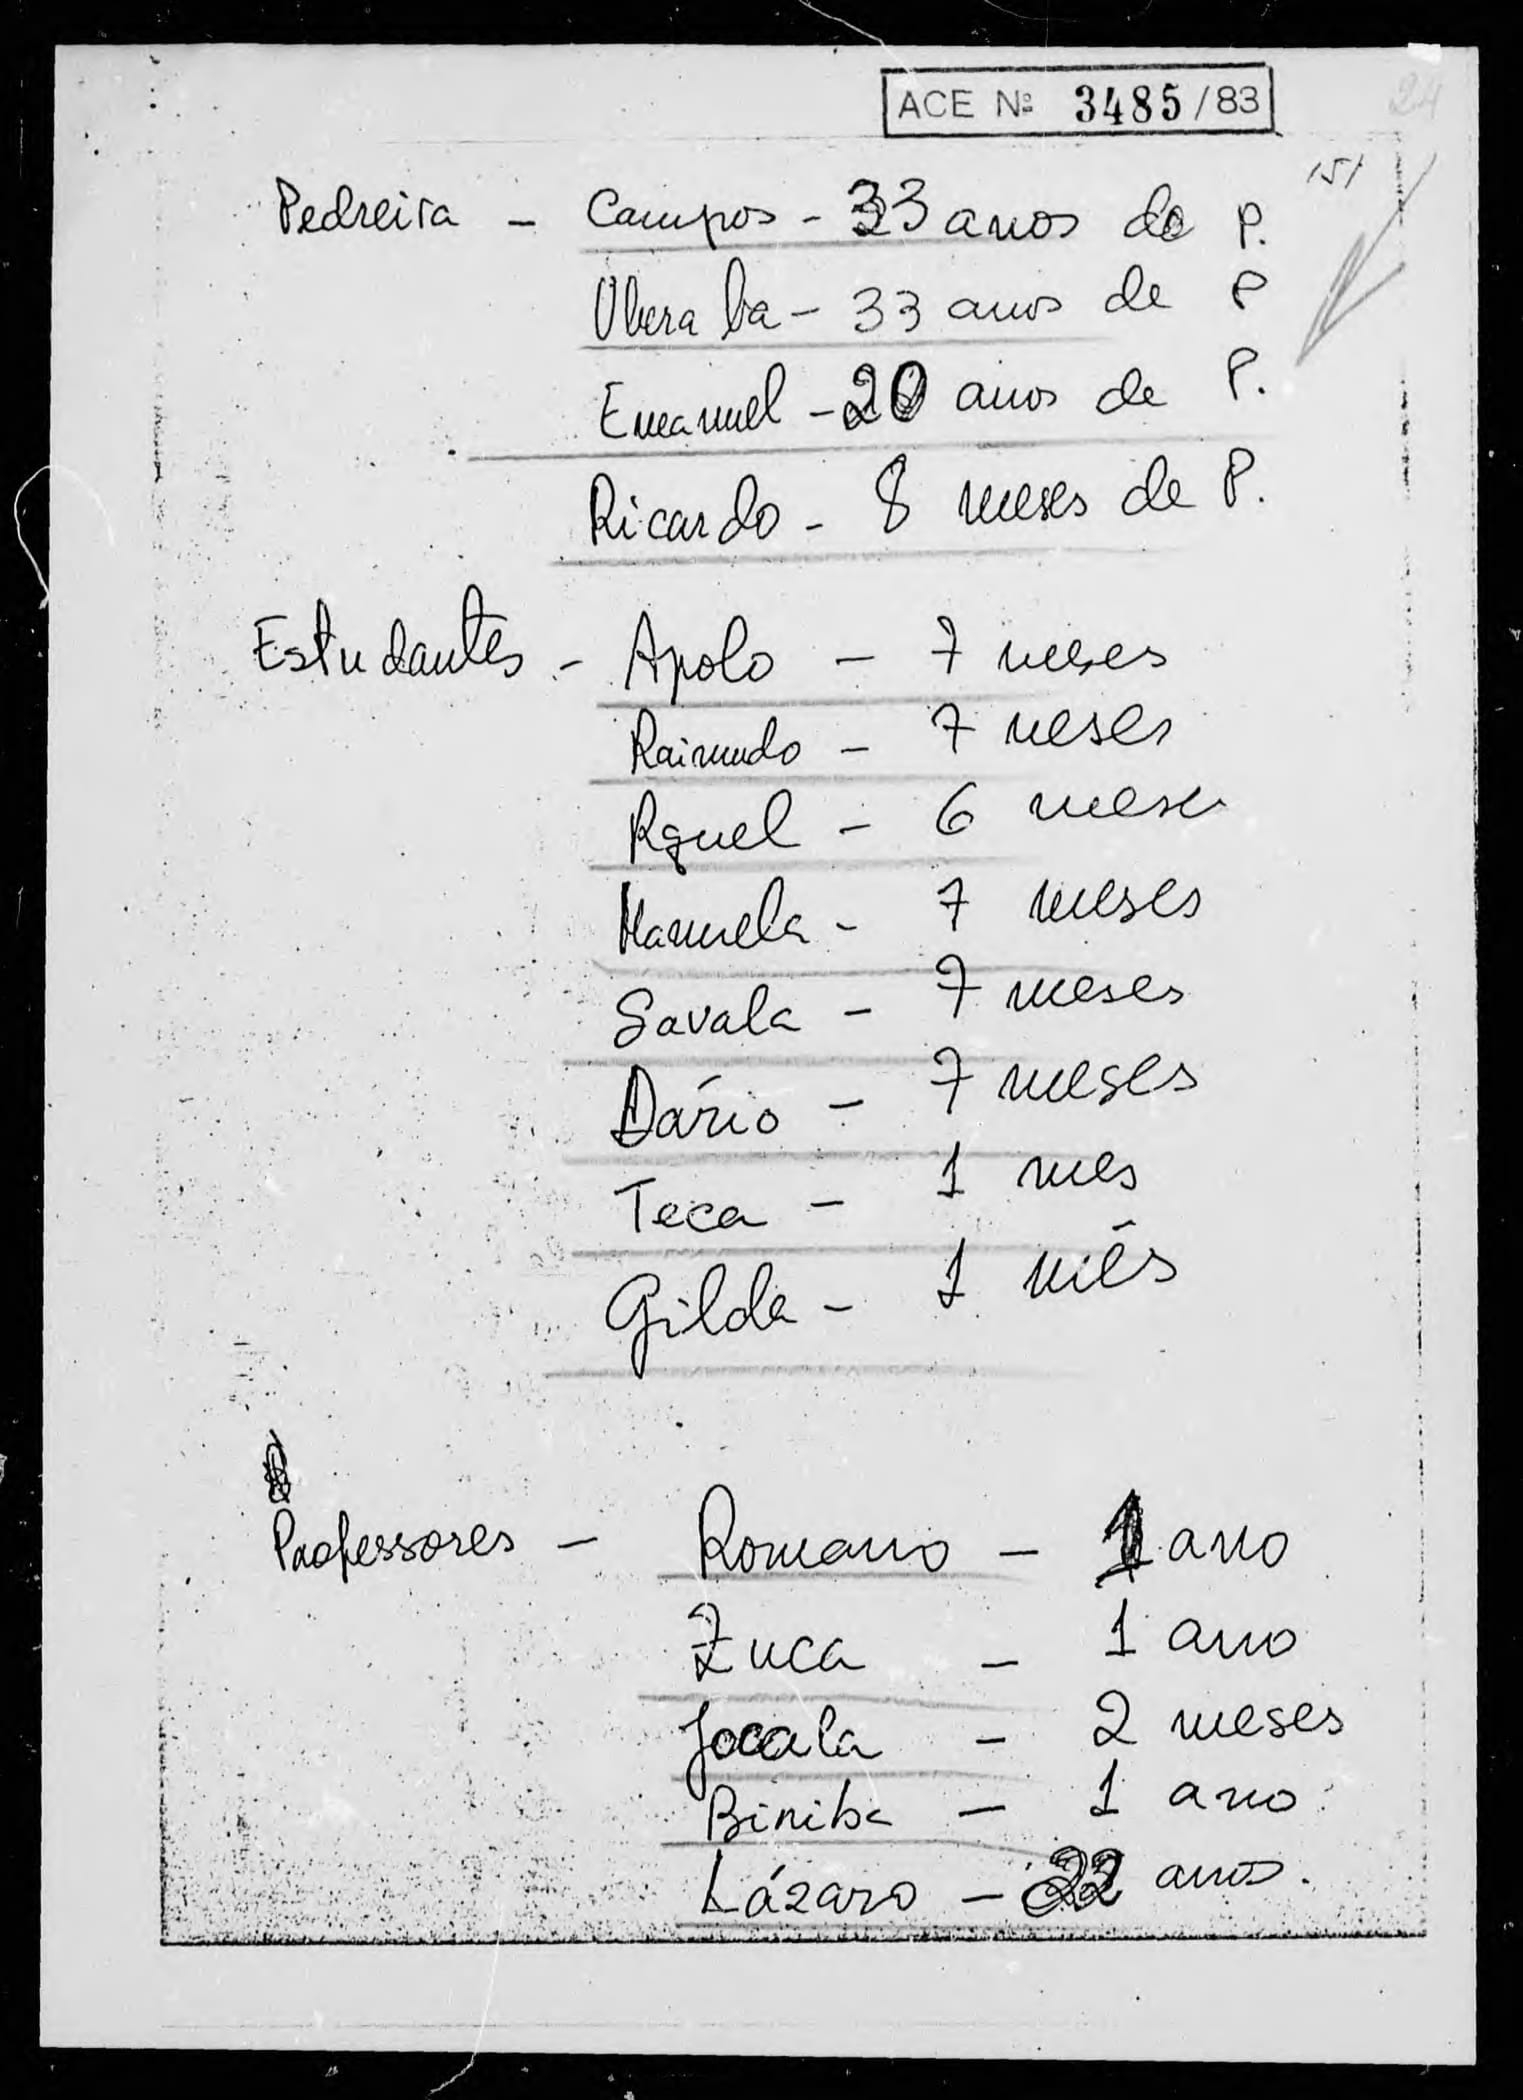 ACE Nº 3485/83
24
151
Pedreira - Campos - 33 anos de P.
Ubera ba - 33 anos de P
Emanuel - 20 anos de P.
Ricardo - 8 meses de P.
Estudantes - Apolo - 7 meses
Raimundo - 7 meses
Rquel - 6 meses
Manuela - 7 meses
Savala - 7 meses
Dário - 7 meses
Teca - 1 mes
Gilda - 1 mês
Professores - Romano - 1 ano
Zuca - 1 ano
- 2 meses
Biniba - 1 ano
Lázaro - 22 anos.